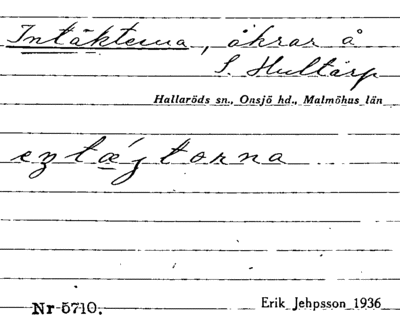 Intäkterna, åkrar å
S. Hultarp
Hallaröds sn., Onsjö hd., Malmöhus län
entǽgtorna
Nr 5710.
Erik Jehpsson 1936